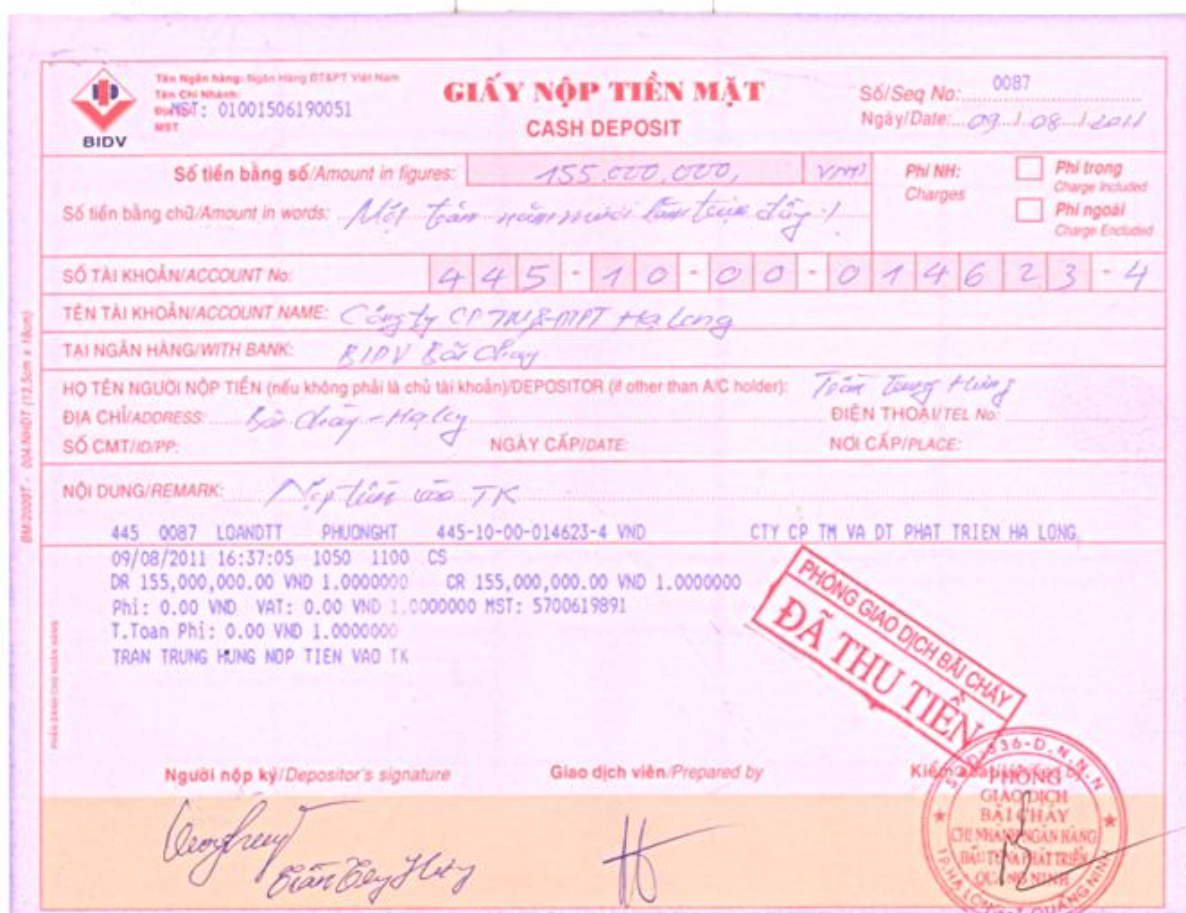 Tên Ngân hàng: Ngân Hàng ĐT&PT Việt Nam
Tên Chi Nhánh:
MST: 01001506190051
MST
BIDV
GIẤY NỘP TIỀN MẶT
CASH DEPOSIT
Số/Seq No: 0087
Ngày/Date: 09 / 08 / 2011
Số tiền bằng số/Amount in figures: 155.000.000, VND
Số tiền bằng chữ/Amount in words: Một trăm năm mươi lăm triệu đồng!
Phí NH:
Charges
Phí trong
Charge Included
Phí ngoài
Charge Encluded
SỐ TÀI KHOẢN/ACCOUNT No: 445-10-00-014623-4
TÊN TÀI KHOẢN/ACCOUNT NAME: Công ty CP TM&ĐTPT Hạ Long
TẠI NGÂN HÀNG/WITH BANK: BIDV Bãi Cháy
HỌ TÊN NGƯỜI NỘP TIỀN (nếu không phải là chủ tài khoản)/DEPOSITOR (if other than A/C holder): Trần Trung Hưng
ĐỊA CHỈ/ADDRESS: Bãi Cháy - Hạ Long ĐIỆN THOẠI/TEL No:
SỐ CMT/ID/PP: NGÀY CẤP/DATE: NƠI CẤP/PLACE:
NỘI DUNG/REMARK: Nộp tiền vào TK
445 0087 LOANDTT PHUONGHT 445-10-00-014623-4 VND CTY CP TM VA DT PHAT TRIEN HA LONG
09/08/2011 16:37:05 1050 1100 CS
DR 155,000,000.00 VND 1.0000000 CR 155,000,000.00 VND 1.0000000
Phi: 0.00 VND VAT: 0.00 VND 1.0000000 MST: 5700619891
T.Toan Phi: 0.00 VND 1.0000000
TRAN TRUNG HUNG NOP TIEN VAO TK
PHÒNG GIAO DỊCH BÃI CHÁY
ĐÃ THU TIỀN
Người nộp ký/Depositor's signature
Giao dịch viên/Prepared by
PHÒNG
GIAO DỊCH
BÃI CHÁY
CHI NHÁNH NGÂN HÀNG
ĐẦU TƯ VÀ PHÁT TRIỂN
QUẢNG NINH